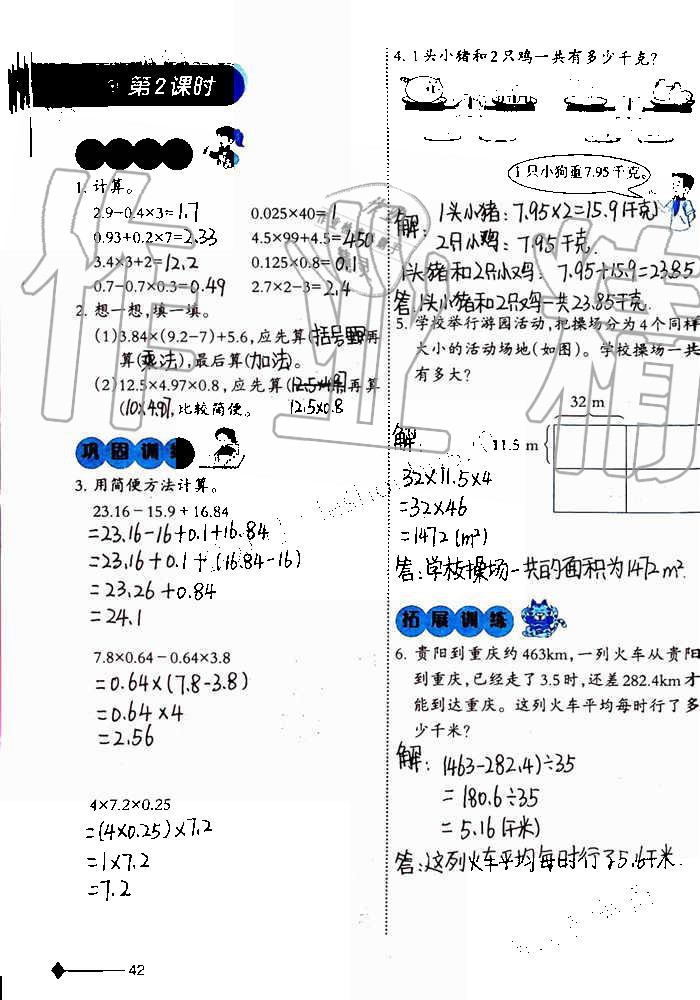 第2课时
1. 计算。
2.9−0.4×3=1.7
0.025×40=1
0.93+0.2×7=2.33
4.5×99+4.5=450
3.4×3+2=12.2
0.125×0.8=0.1
0.7−0.7×0.3=0.49
2.7×2−3=2.4
2. 想一想,填一填。
(1)3.84×(9.2−7)+5.6,应先算(括号里)再
算(乘法),最后算(加法)。
(2)12.5×4.97×0.8,应先算(12.5×4.97)再算
12.5×0.8
(10×4.97),比较简便。
巩固训练
3. 用简便方法计算。
23.16−15.9+16.84
=23.16−16+0.1+16.84
=23.16+0.1+(16.84−16)
=23.26+0.84
=24.1
7.8×0.64−0.64×3.8
=0.64×(7.8−3.8)
=0.64×4
=2.56
4×7.2×0.25
=(4×0.25)×7.2
=1×7.2
=7.2
42
4. 1头小猪和2只鸡一共有多少千克?
1只小狗重7.95千克。
解: 1头小猪:7.95×2=15.9(千克)
2只小鸡:7.95千克.
1头猪和2只小鸡:7.95+15.9=23.85
答:1头小猪和2只小鸡一共23.85千克.
5. 学校举行游园活动,把操场分为4个同样
大小的活动场地(如图)。学校操场一共
有多大?
32 m
11.5 m
解:
32×11.5×4
=32×46
=1472(m²)
答:学校操场一共的面积为1472m².
拓展训练
6. 贵阳到重庆约463km,一列火车从贵阳
到重庆,已经走了3.5时,还差282.4km才
能到达重庆。这列火车平均每时行了多
少千米?
解: (463−282.4)÷35
=180.6÷35
=5.16(千米)
答:这列火车平均每时行了5.6千米.